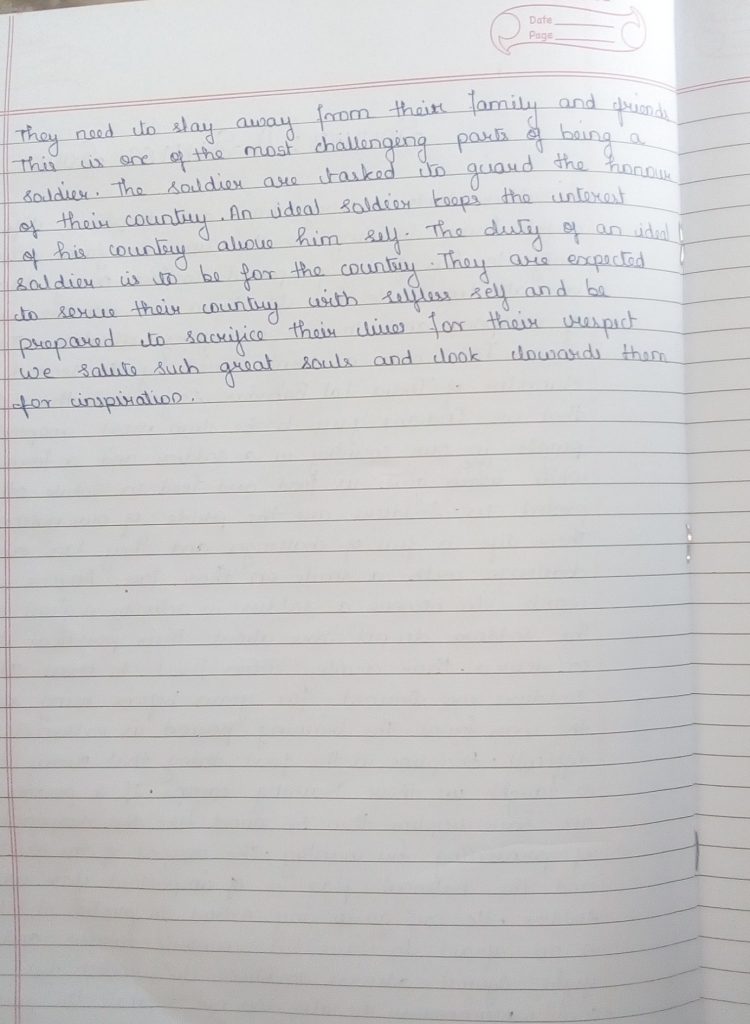 Date
Page
They need to stay away from their family and friends
This is one of the most challenging parts of being a
soldier. The soldier are tasked to guard the honour
of their country. An ideal soldier keeps the interest
of his country above him self. The duty of an ideal
soldier is to be for the country. They are expected
to serve their country with selfless self and be
prepared to sacrifice their lives for their respect
we salute such great souls and look towards them
for inspiration.